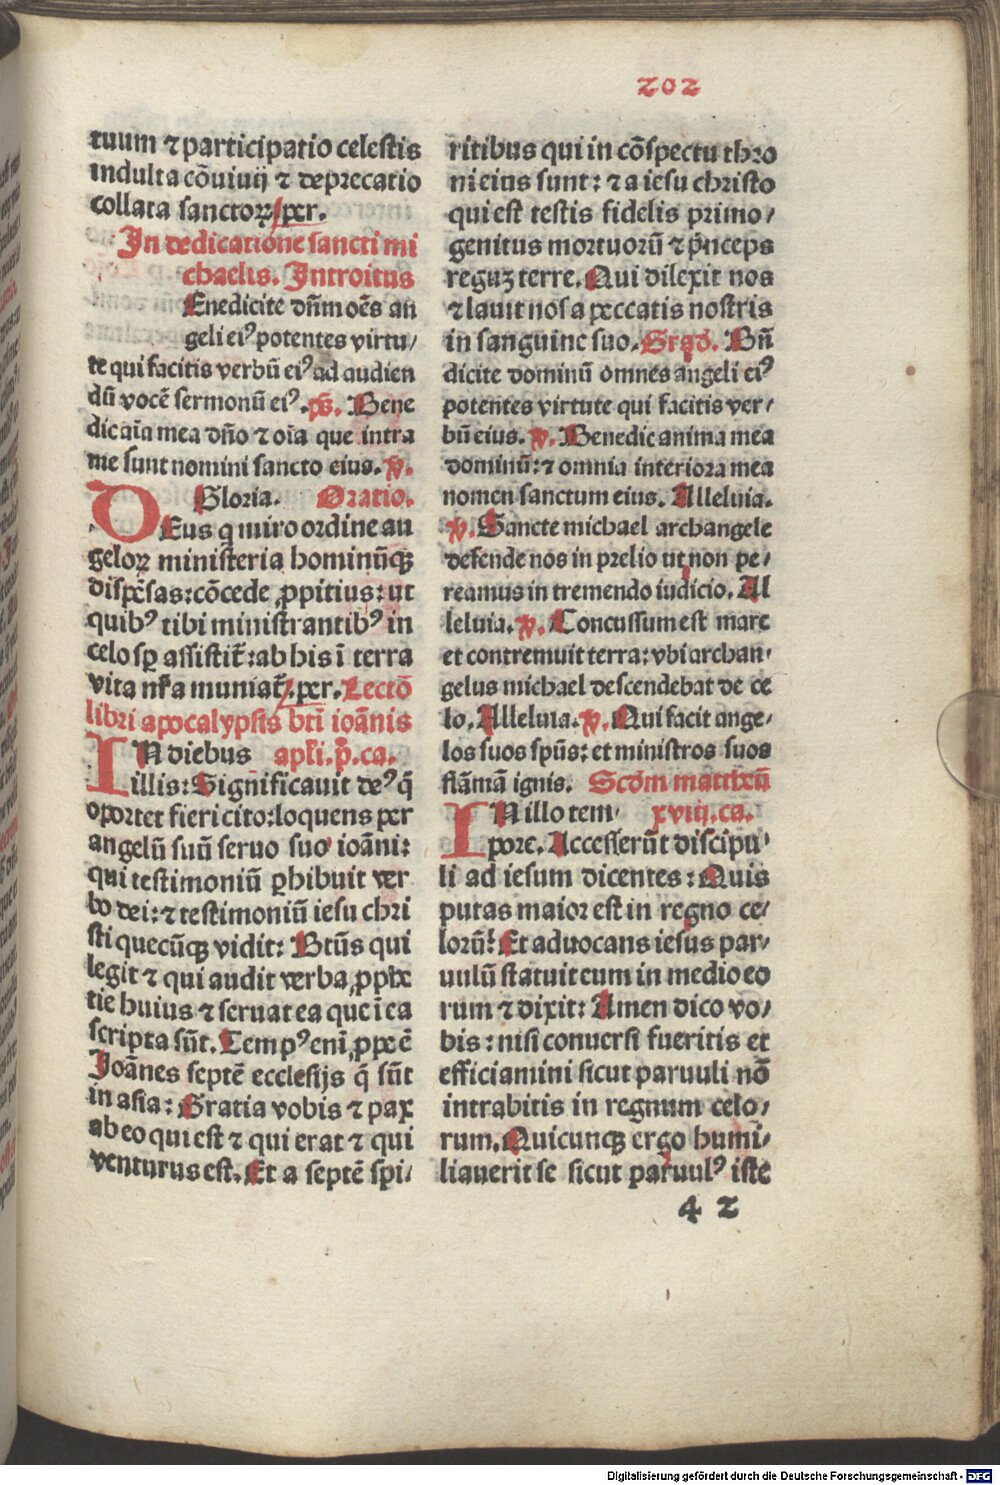 202
tuum ⁊ participatio celestis
indulta cōuiuij ⁊ deprecatio
collata sanctoꝝ. per.
In dedicatione sancti mi
chaelis. Introitus
Enedicite dn̄m oēs an
geli eiꝰ potentes virtu/
te qui facitis verbū eiꝰ ad audien
dū vocē sermonū eiꝰ. p̄s. Bene
dic aīa mea dn̄o ⁊ oīa que intra
me sunt nomini sancto eius. ℣.
Gloria. Oratio.
DEus q miro ordine an
geloꝝ ministeria hominūqꝫ
dispēsas: cōcede ꝓpitius: ut
quibꝰ tibi ministrantibꝰ in
celo sp̄ assistit̄: ab his ī terra
vita nr̄a muniat̄. per. Lectō
libri apocalypsis bti ioānis
IN diebus apl̄i. p̄. ca.
illis: Significauit deꝰ q̄
oportet fieri cito: loquens per
angelū suū seruo suo ioāni:
qui testimoniū ꝑhibuit ver
bo dei: ⁊ testimoniū iesu chri
sti quecūqꝫ vidit: Btūs qui
legit ⁊ qui audit verba ꝓphe
tie huius ⁊ seruat ea que ī ea
scripta sūt. Tempꝰ enī ꝓpe ē
Joānes septē ecclesijs q̄ sūt
in asia: Gratia vobis ⁊ pax
ab eo qui est ⁊ qui erat ⁊ qui
venturus est. Et a septē spi/
ritibus qui in cōspectu thro
ni eius sunt: ⁊ a iesu christo
qui est testis fidelis primo/
genitus mortuorū ⁊ p̄nceps
reguꝫ terre. Qui dilexit nos
⁊ lauit nos a peccatis nostris
in sanguine suo. Grad. Bn̄
dicite dominū omnes angeli eiꝰ
potentes virtute qui facitis ver/
bū eius. ℣. Benedic anima mea
dominū: ⁊ omnia interiora mea
nomen sanctum eius. Alleluia.
℣. Sancte michael archangele
defende nos in prelio ut non pe/
reamus in tremendo iudicio. Al
leluia. ℣. Concussum est mare
et contremuit terra: vbi archan/
gelus michael descendebat de ce
lo. Alleluia. ℣. Qui facit ange/
los suos spūs: et ministros suos
flāmā ignis. Scdm mattheū
IN illo tem/ xviij. ca.
pore. Accesserūt discipu/
li ad iesum dicentes: Quis
putas maior est in regno ce/
lorū? Et aduocans iesus par/
uulū statuit eum in medio eo
rum ⁊ dixit: Amen dico vo/
bis: nisi conuersi fueritis et
efficiamini sicut paruuli nō
intrabitis in regnum celo/
rum. Quicunqꝫ ergo humi/
liauerit se sicut paruulꝰ iste
4 2
Digitalisierung gefördert durch die Deutsche Forschungsgemeinschaft - DFG